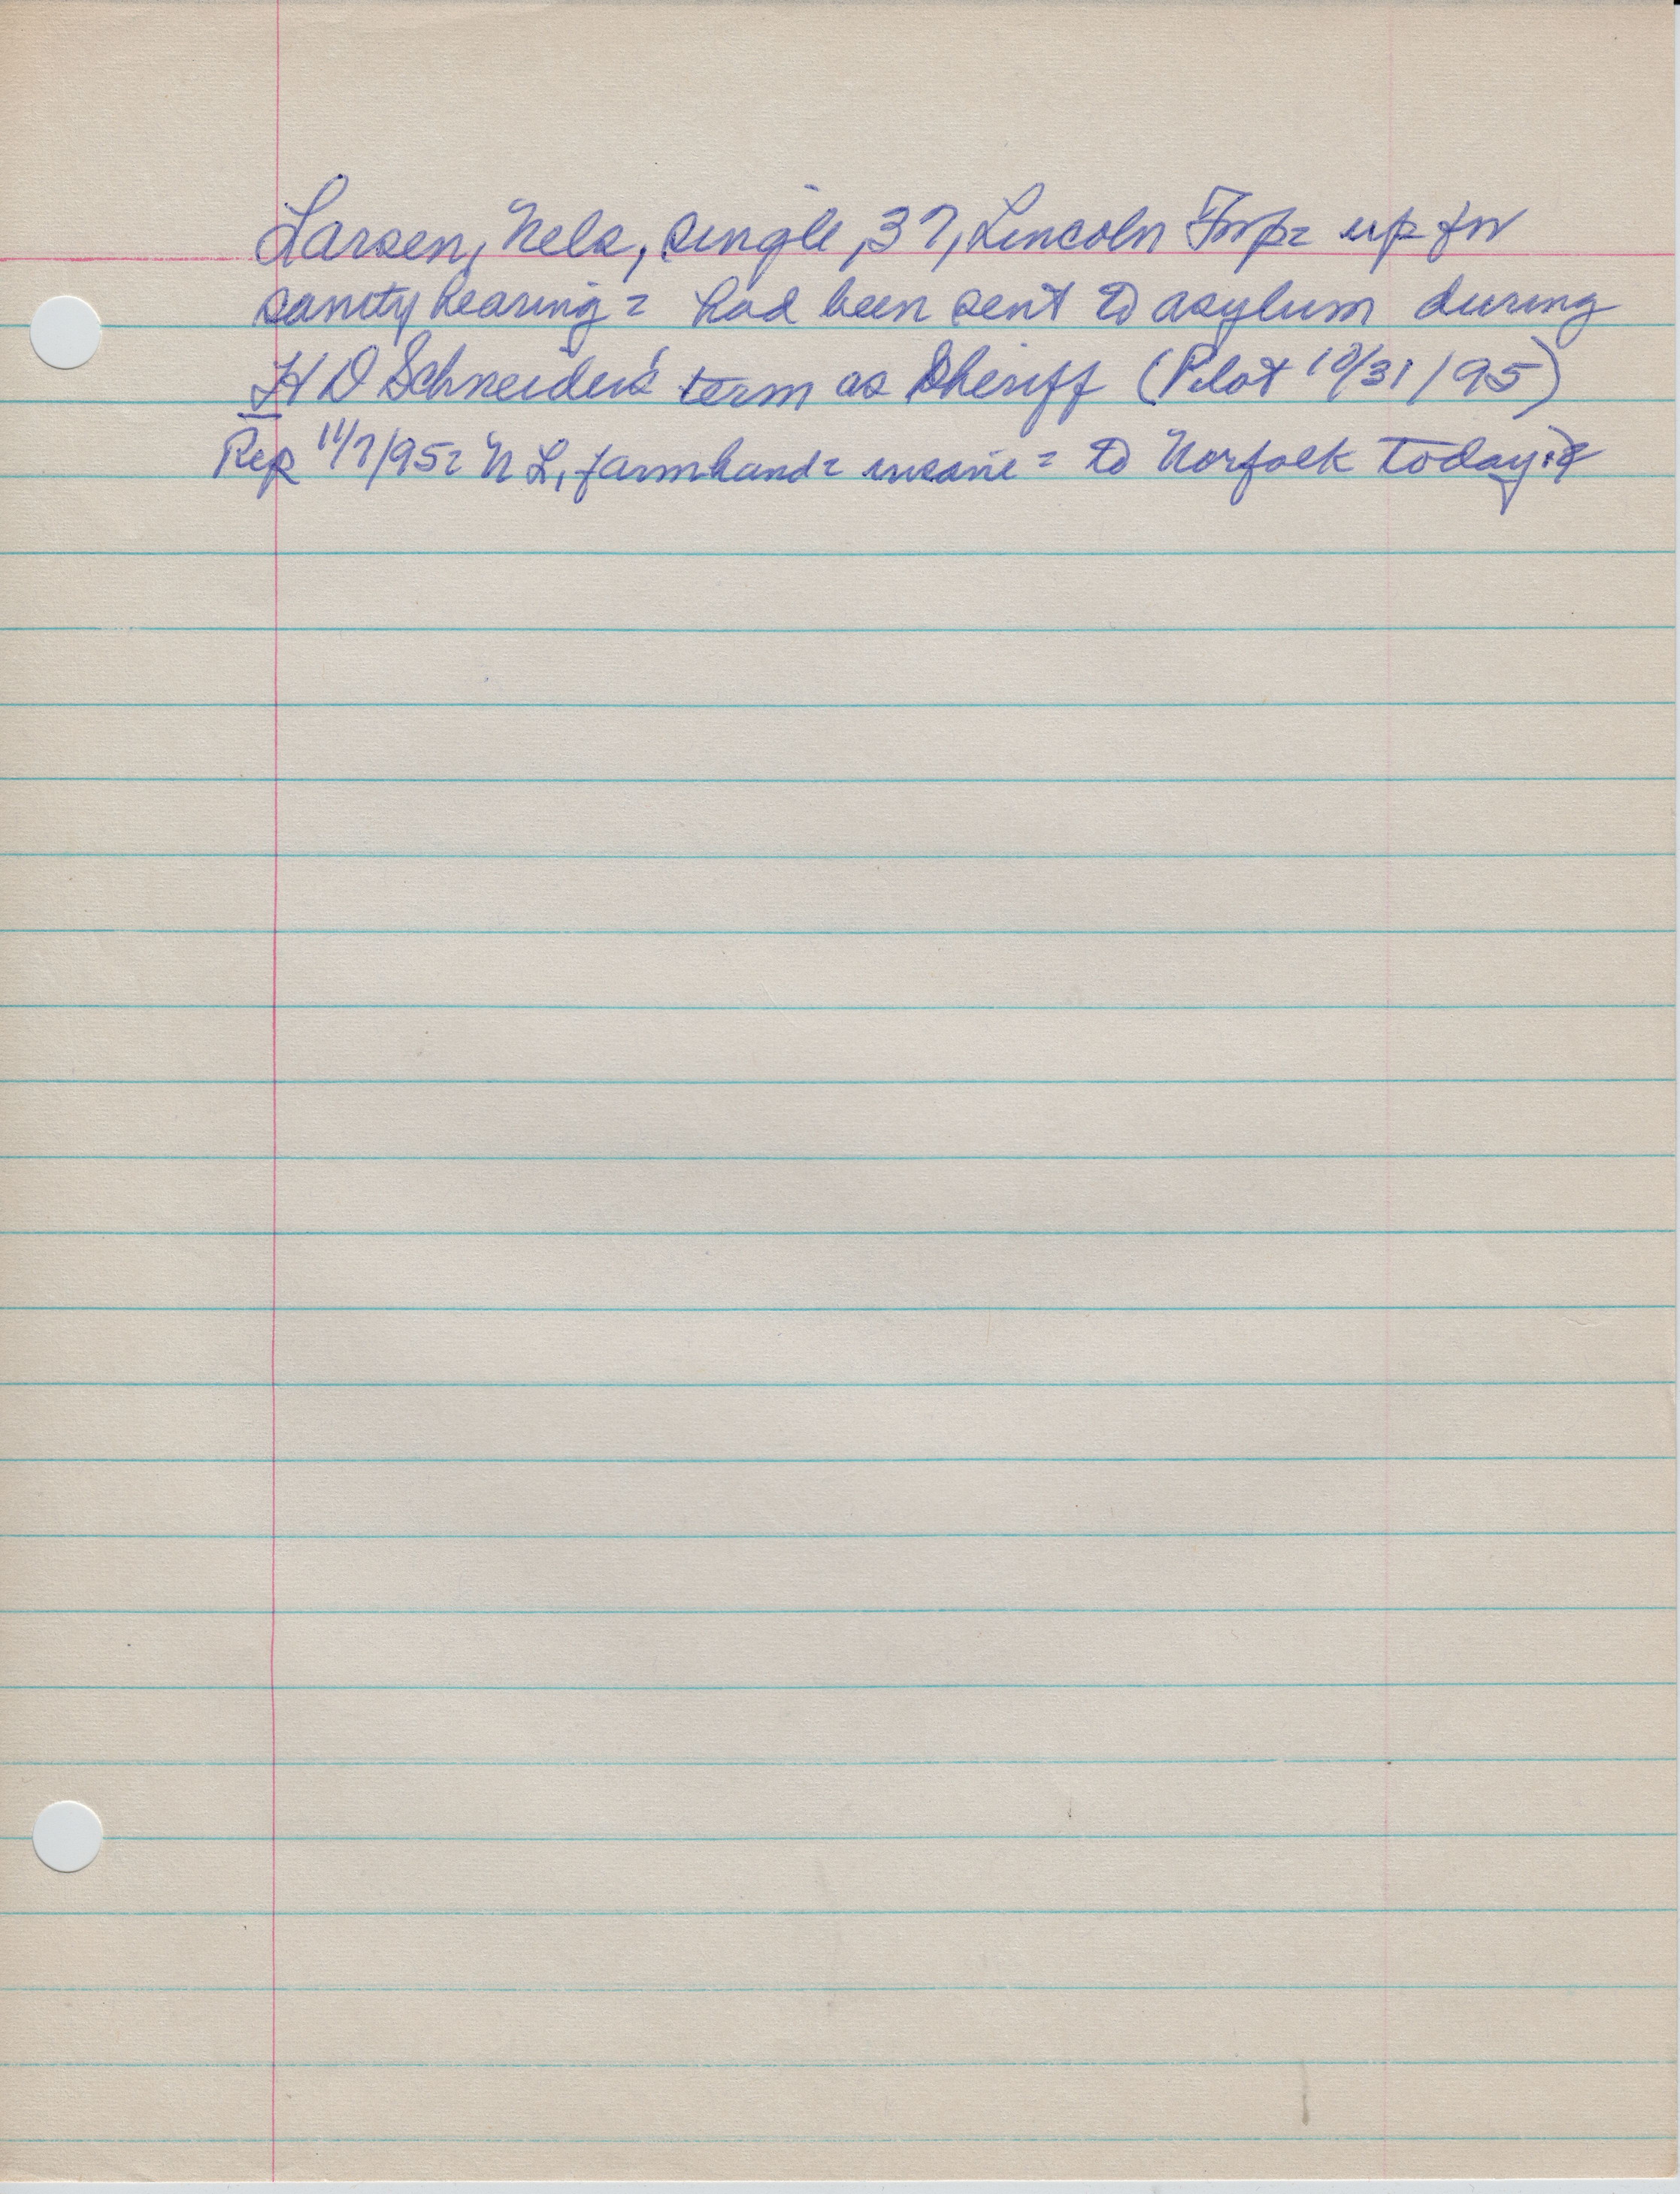 Larsen, Nels, single, 37, Lincoln Twp= up for
sanity hearing= had been sent to asylum during
H D Schneider's term as Sheriff (Pilot 10/31/95)
Rep 11/7/95= N L, farmhand= insane= to Norfolk today